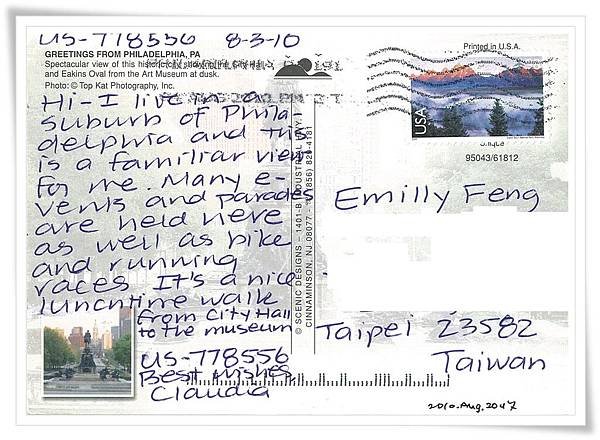 US-778556 8-3-10
GREETINGS FROM PHILADELPHIA, PA
Spectacular view of this
and Eakins Oval from the Art Museum at dusk.
Photo: © Top Kat Photography, Inc.
Hi-I live in a
suburb of Phila-
delphia and this
is a familiar view
for me. Many e-
vents and parades
are held here
as well as bike
and running
races. It's a nice
lunchtime walk
from City Hall
to the museum
US-778556
Best wishes,
Claudia
© SCENIC DESIGNS – 1401-B INDUSTRIAL
CINNAMINSON, NJ 08077 – (856) 829-4181
Printed in U.S.A.
USA
95043/61812
Emilly Feng
Taipei 23582
Taiwan
2010.Aug.20